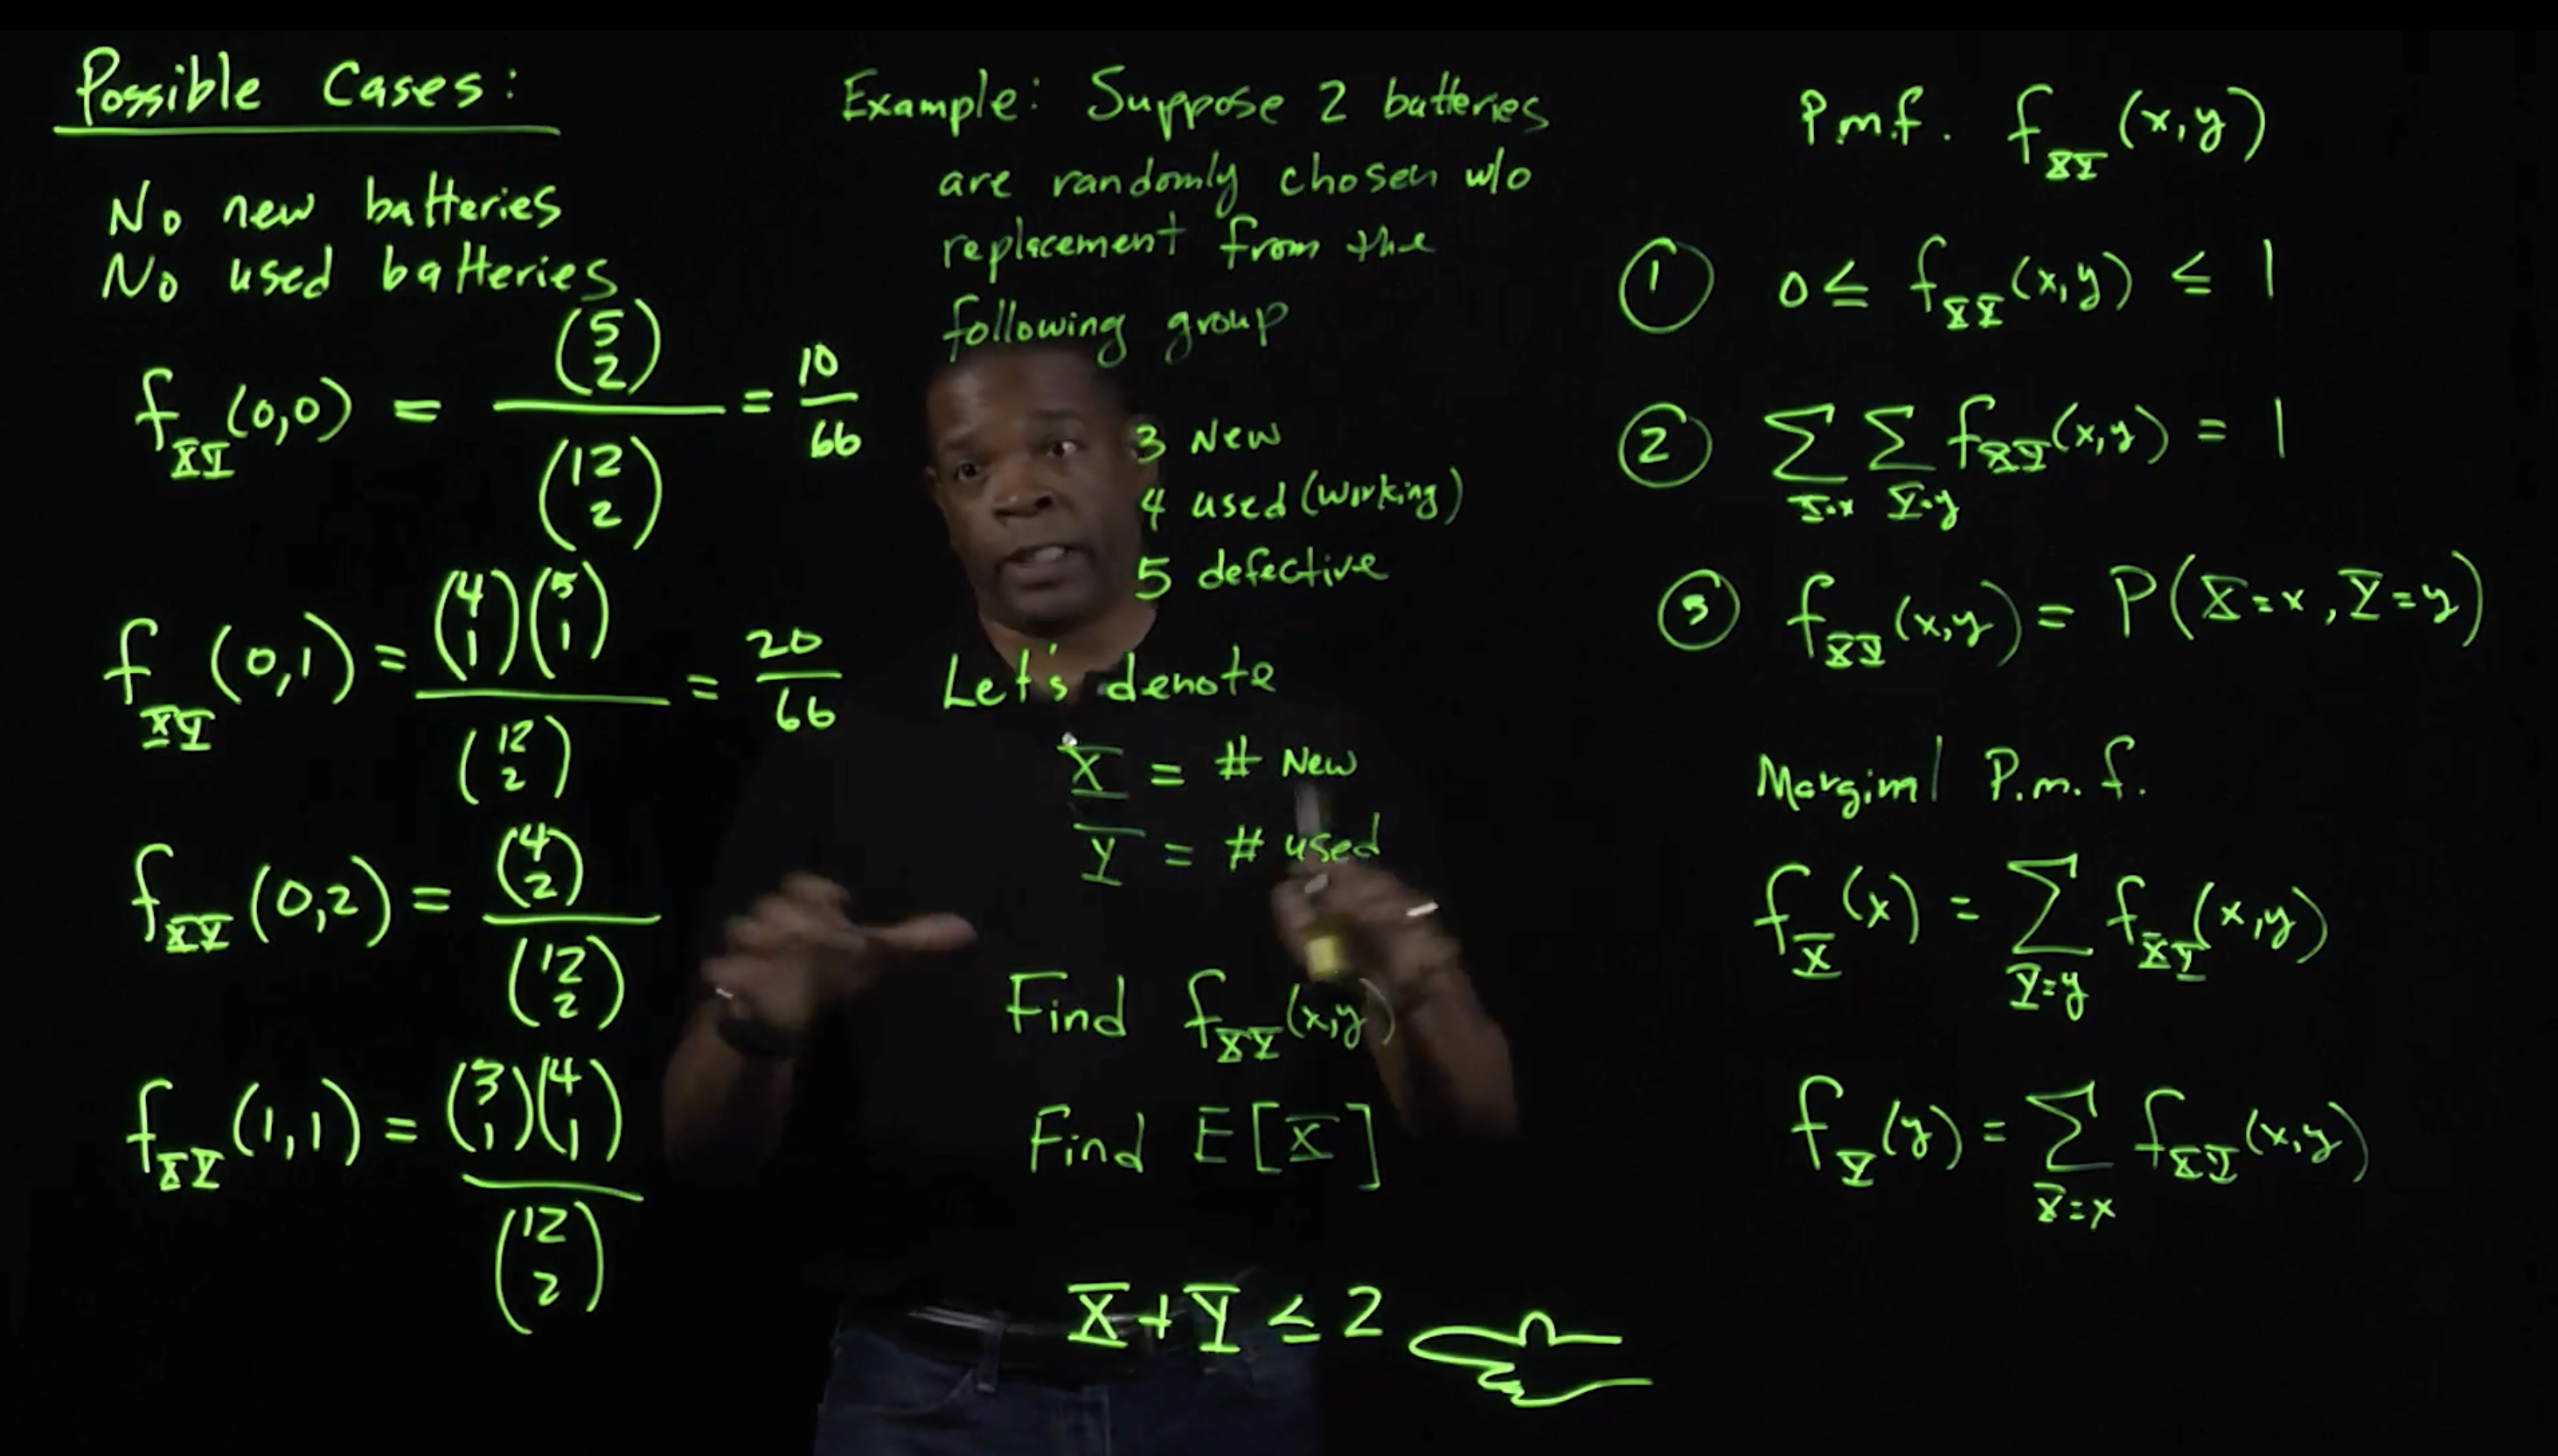 Possible Cases:
No new batteries
No used batteries
f_XY(0,0) = (5 2) / (12 2) = 10/66
f_XY(0,1) = (4 1)(5 1) / (12 2) = 20/66
f_XY(0,2) = (4 2) / (12 2)
f_XY(1,1) = (3 1)(4 1) / (12 2)
Example: Suppose 2 batteries
are randomly chosen w/o
replacement from the
following group
3 New
4 used (working)
5 defective
Let's denote
X = # New
Y = # used
Find f_XY(x,y)
Find E[X]
X+Y ≤ 2
P.m.f. f_XY(x,y)
① 0 ≤ f_XY(x,y) ≤ 1
② Σ_X=x Σ_Y=y f_XY(x,y) = 1
③ f_XY(x,y) = P(X=x, Y=y)
Marginal P.m.f.
f_X(x) = Σ_Y=y f_XY(x,y)
f_Y(y) = Σ_X=x f_XY(x,y)